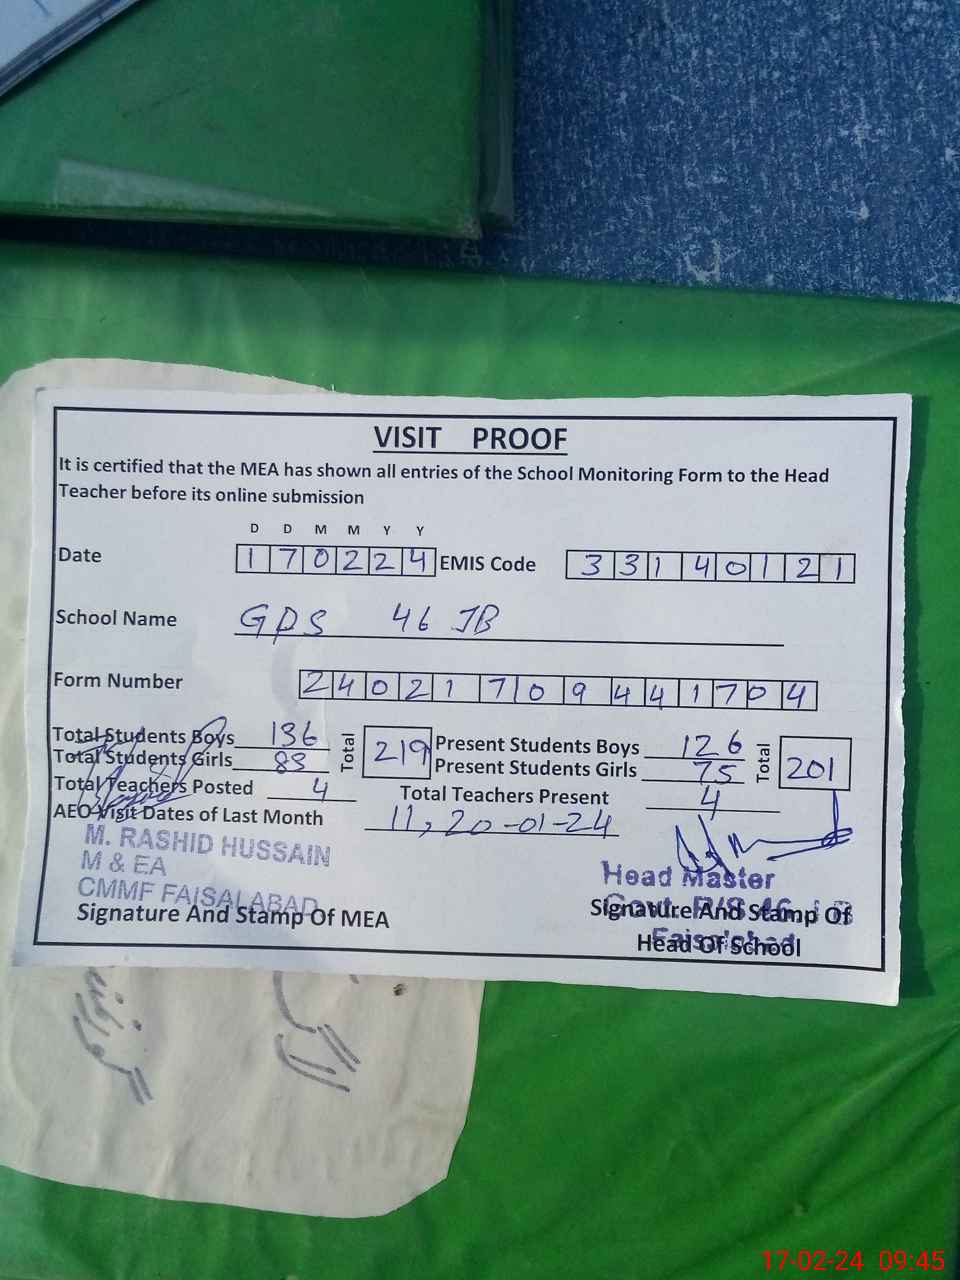 VISIT PROOF
It is certified that the MEA has shown all entries of the School Monitoring Form to the Head
Teacher before its online submission
D D M M Y Y
Date 170224 EMIS Code 33140121
School Name GPS 46 JB
Form Number 24021709441704
Total Students Boys 136 Total 219 Present Students Boys 126 Total 201
Total Students Girls 83 Present Students Girls 75
Total Teachers Posted 4 Total Teachers Present 4
AEO Visit Dates of Last Month 11, 20-01-24
M. RASHID HUSSAIN
M & EA
CMMF FAISALABAD
Signature And Stamp Of MEA
Head Master
Govt. P/S 46 J B
Faisalabad
Signature And Stamp Of
Head Of School
17-02-24 09:45